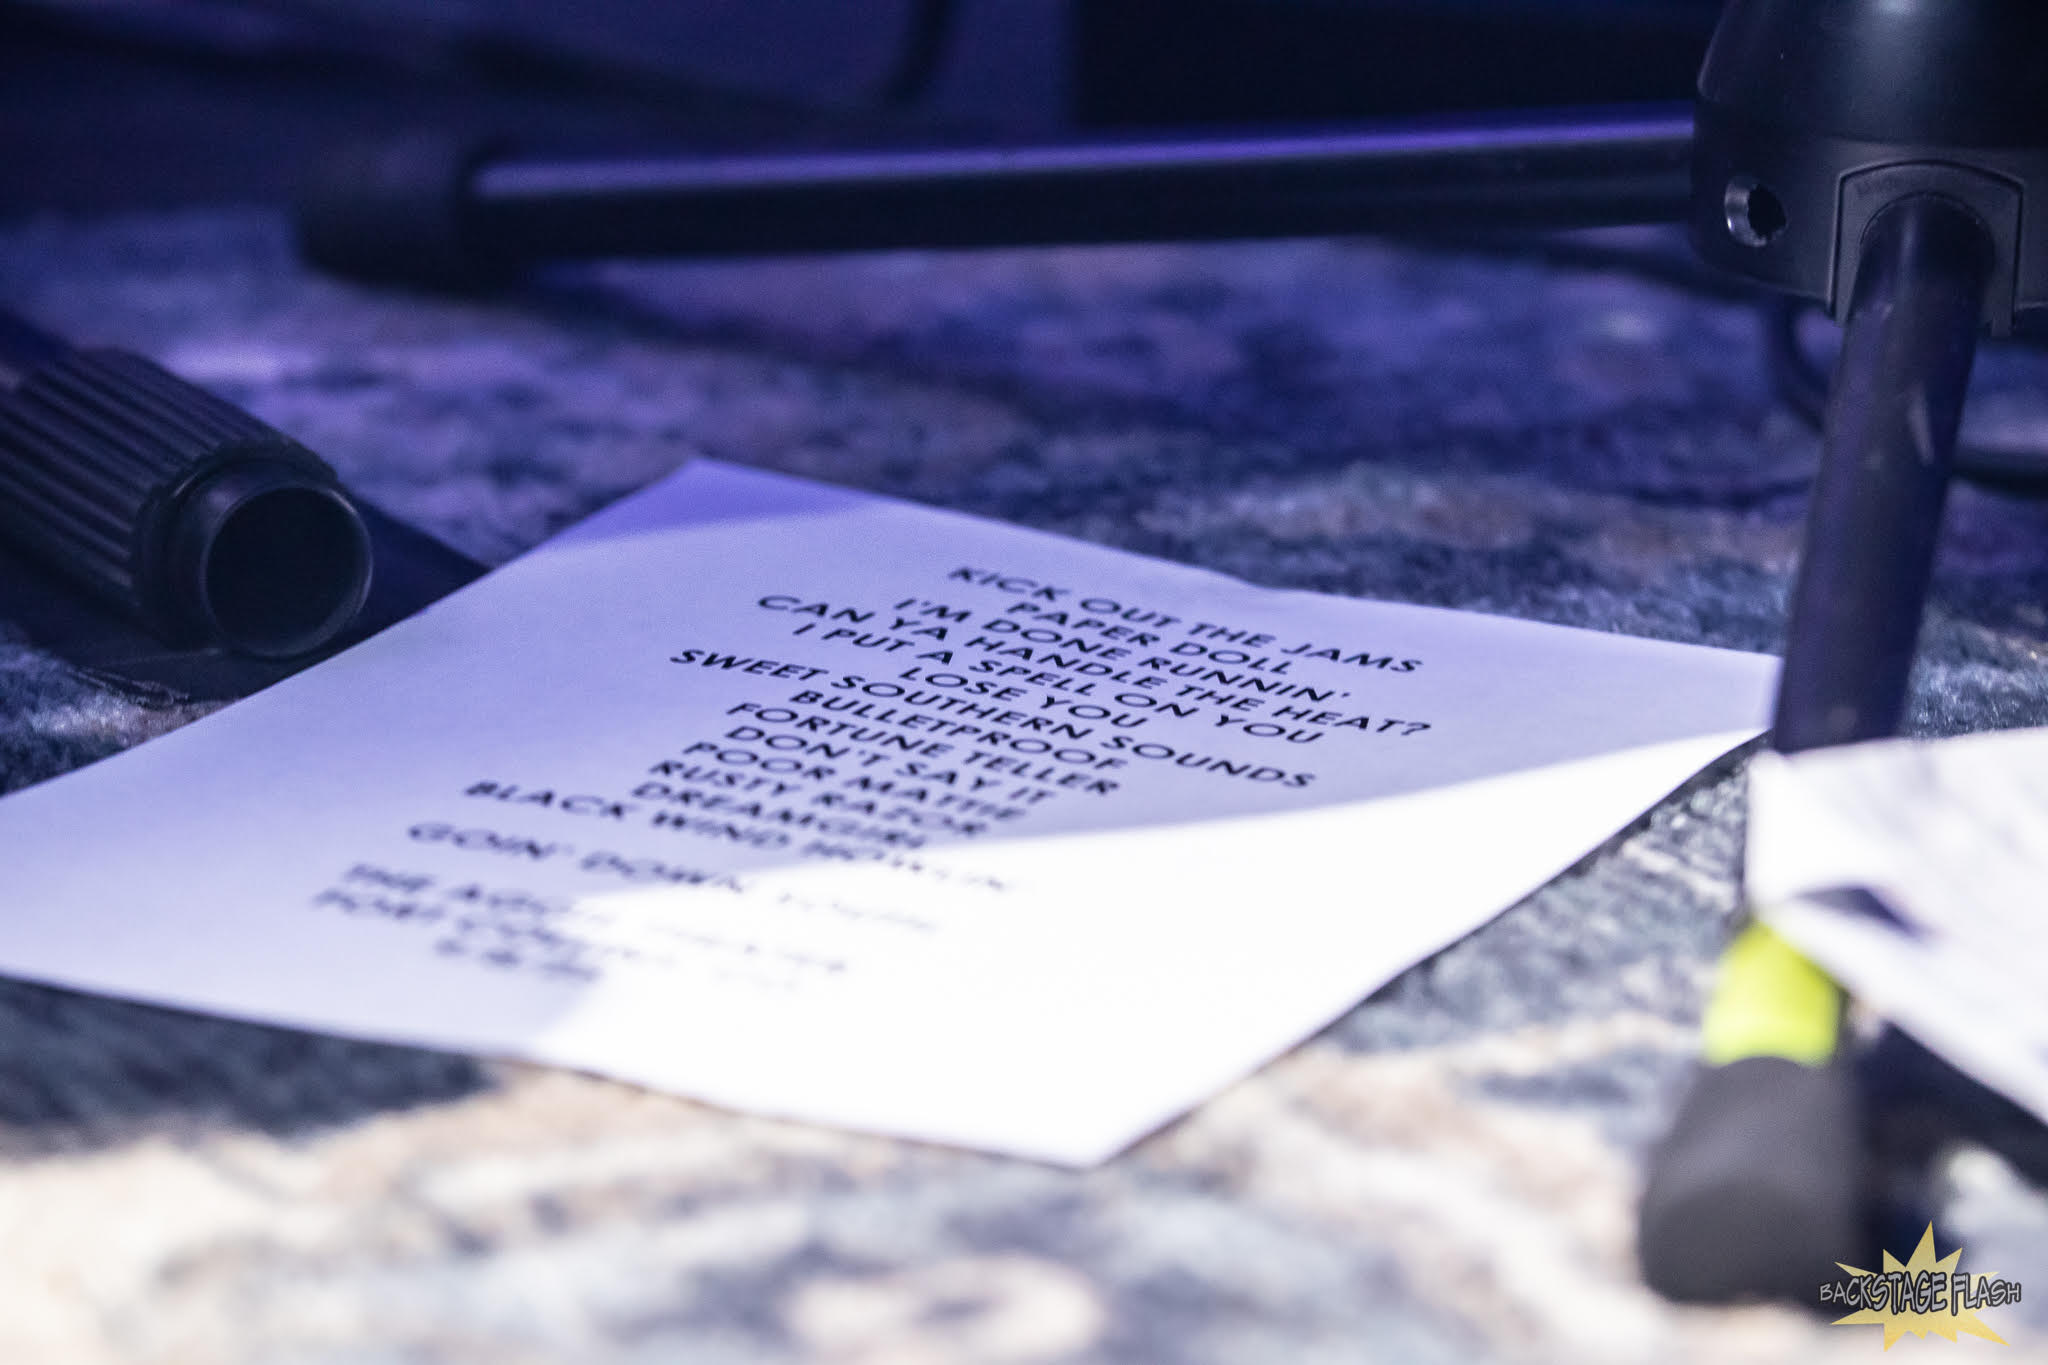 KICK OUT THE JAMS
PAPER DOLL
I'M DONE RUNNIN'
CAN YA HANDLE THE HEAT?
I PUT A SPELL ON YOU
LOSE YOU
SWEET SOUTHERN SOUNDS
BULLETPROOF
FORTUNE TELLER
DON'T SAY IT
POOR MATTIE
RUSTY RAZOR
DREAMGIRL
BLACK WIND HOWLIN'
GOIN' DOWN SOUTH
THE
FORT COLLINS
BACKSTAGE FLASH